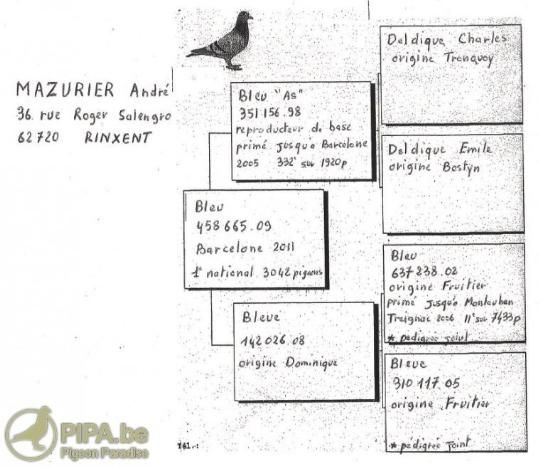 MAZURIER André
36. rue Roger Salengro
62720 RINXENT
Bleu
458 665.09
Barcelone 2011
1° national 3042 pigeons
Bleu "As"
351 156.98
reproducteur de base
primé jusqu'a Barcelone
2005 332° sur 1920p
Bleue
142 026.08
origine Dominique
Deldique Charles
origine Trenquoy
Deldique Emile
origine Bostyn
Bleu
637 238.02
origine Fruitier
primé jusqu'a Montauban
Treignac 2006 11° sur 7433p
* pedigrée joint
Bleue
310 117.05
origine Fruitier
* pedigrée joint
PIPA.be
Pigeon Paradise